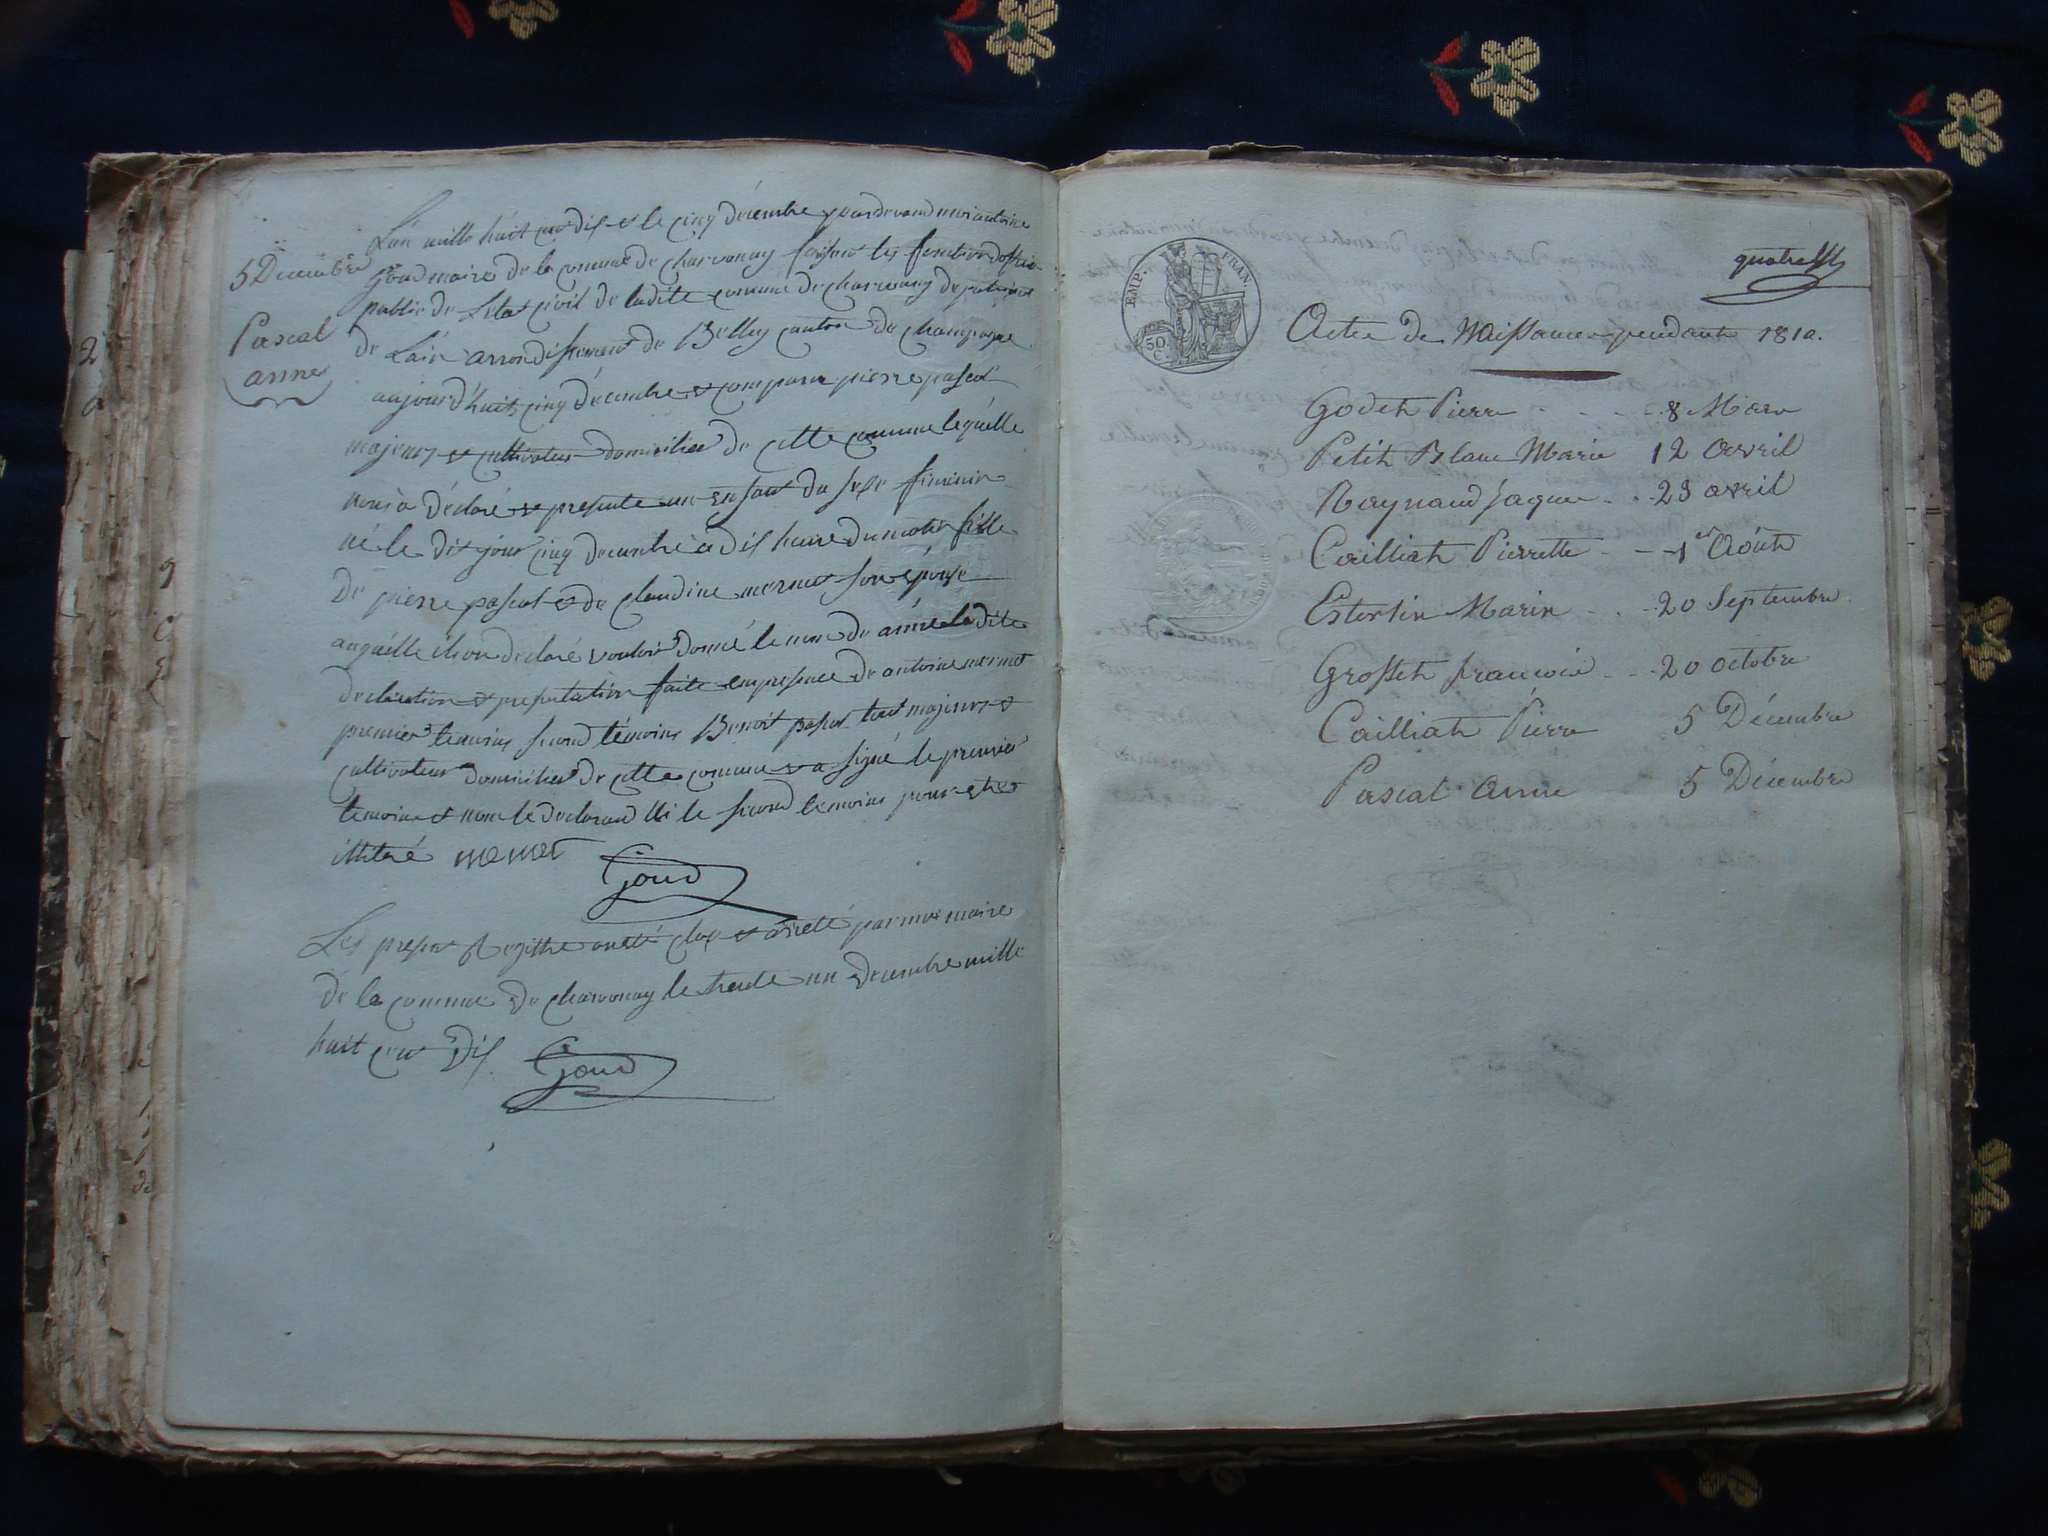 5 Décembre
Pascal
anne
L'an mille huit cen dix et le cinq décembre pardevand moi antoine
Goud maire de la comune de Charvonay faisant les fonction d'officier
public de L'eta Civil de ladite comune de Charvonay departement
de L'ain arrondissement de Belley canton de Champagne
aujourd'huit cinq décembre et comparu pierre pascal
majeurs et cultivateur domicilier de cette comune lequelle
nous a déclaré et presente un enfant du sexe feminin
né le dit jour cinq decembre a dix heure du matin fille
De pierre pascal et de Claudine mermet son epouse
auquélle il nous declaré vouloir donné le nom de anne la dite
declaration et presentation faite en presence de antoine mermet
premier temoins second témoins Benoit pascal tout majeurs et
cultivateur domicilier de cette comune et a signé le premier
temoins et non le declarand ni le second temoins pour etre
illitéré mermet
Goud
Les present Registre a eté clos et arreté par moi maire
de la comune de Charvonay le trente un decembre mille
huit cen dix
Goud
EMP. FRAN.
50 C.
quatre
Actes de Naissances pendant 1810.
Godet Pierre 8 Mars
Petit Blanc Marie 12 avril
Raynaud Jaque 23 avril
Cailliat Pierrette 1er Août
Estertin Marin 20 Septembre
Grosset francois 20 octobre
Cailliat Pierre 5 Décembre
Pascal Anne 5 Décembre